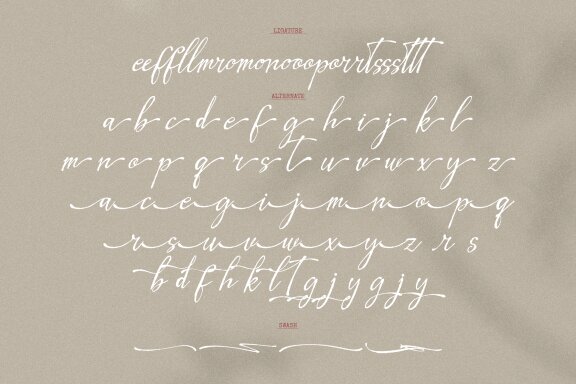 LIGATURE
eeffllmromonoooporrtssstttt
ALTERNATE
a b c d e f g h i j k l
m n o p q r s t u v w x y z
a c e g i j m n o p q
r s u v w x y z r s
b d f h k l t g j y g j y
SWASH